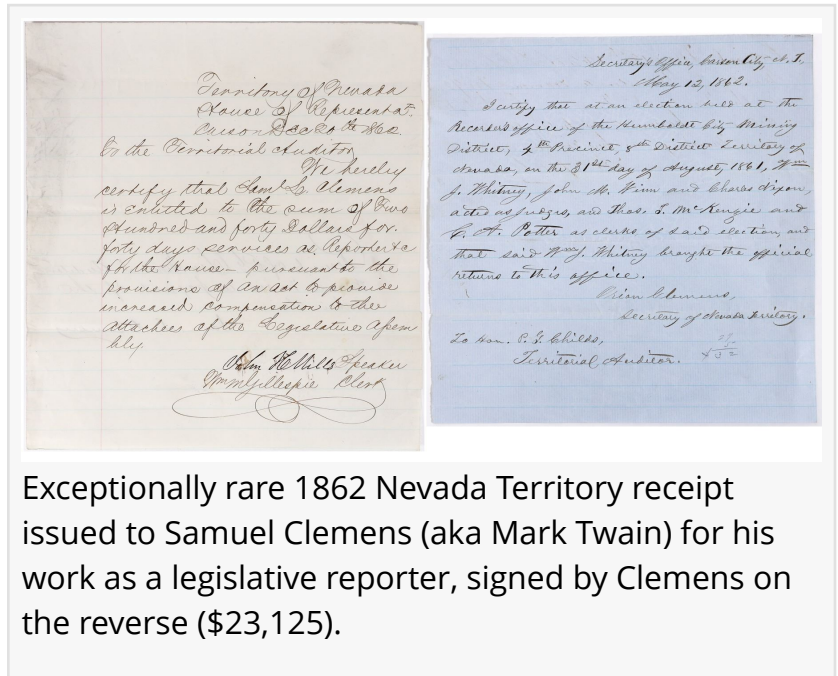 Territory of Nevada
House of Representat.
Carson Dec 20th 1862
To the Territorial Auditor
We hereby
certify that Saml L. Clemens
is entitled to the sum of Two
Hundred and forty Dollars for
forty days services as Reporter &c
for the House - pursuant to the
provisions of An act to provide
increased compensation to the
attachees of the Legislative Assem
bly.
John H Mills Speaker
Wm M Gillespie Clerk
Secretary's Office, Carson City N. T.,
May 12, 1862.
I certify that at an election held at the
Recorder's office of the Humboldt City Mining
District, 4th Precinct, 8th District Territory of
Nevada, on the 31st day of August, 1861, Wm
J. Whitney, John M. Winn and Charles Nixon,
acted as Judges, and Thos. J. McKenzie and
C. A. Potter as clerks of said election, and
that said Wm J. Whitney brought the official
returns to this office.
Orion Clemens,
Secretary of Nevada Territory.
To Hon. P. G. Childs,
Territorial Auditor.
Exceptionally rare 1862 Nevada Territory receipt
issued to Samuel Clemens (aka Mark Twain) for his
work as a legislative reporter, signed by Clemens on
the reverse ($23,125).